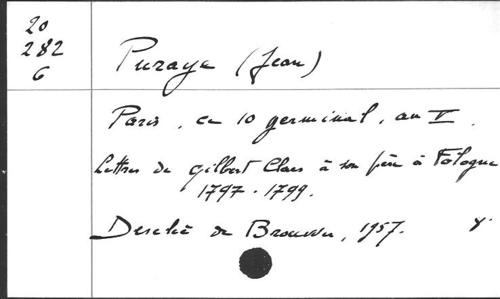 20
282
6
Puraye (Jean)
Paris, ce 10 germinal, an V.
Lettres de Gilbert Claes à son père à Fologne
1797-1799.
Desclée de Brouwer, 1957.